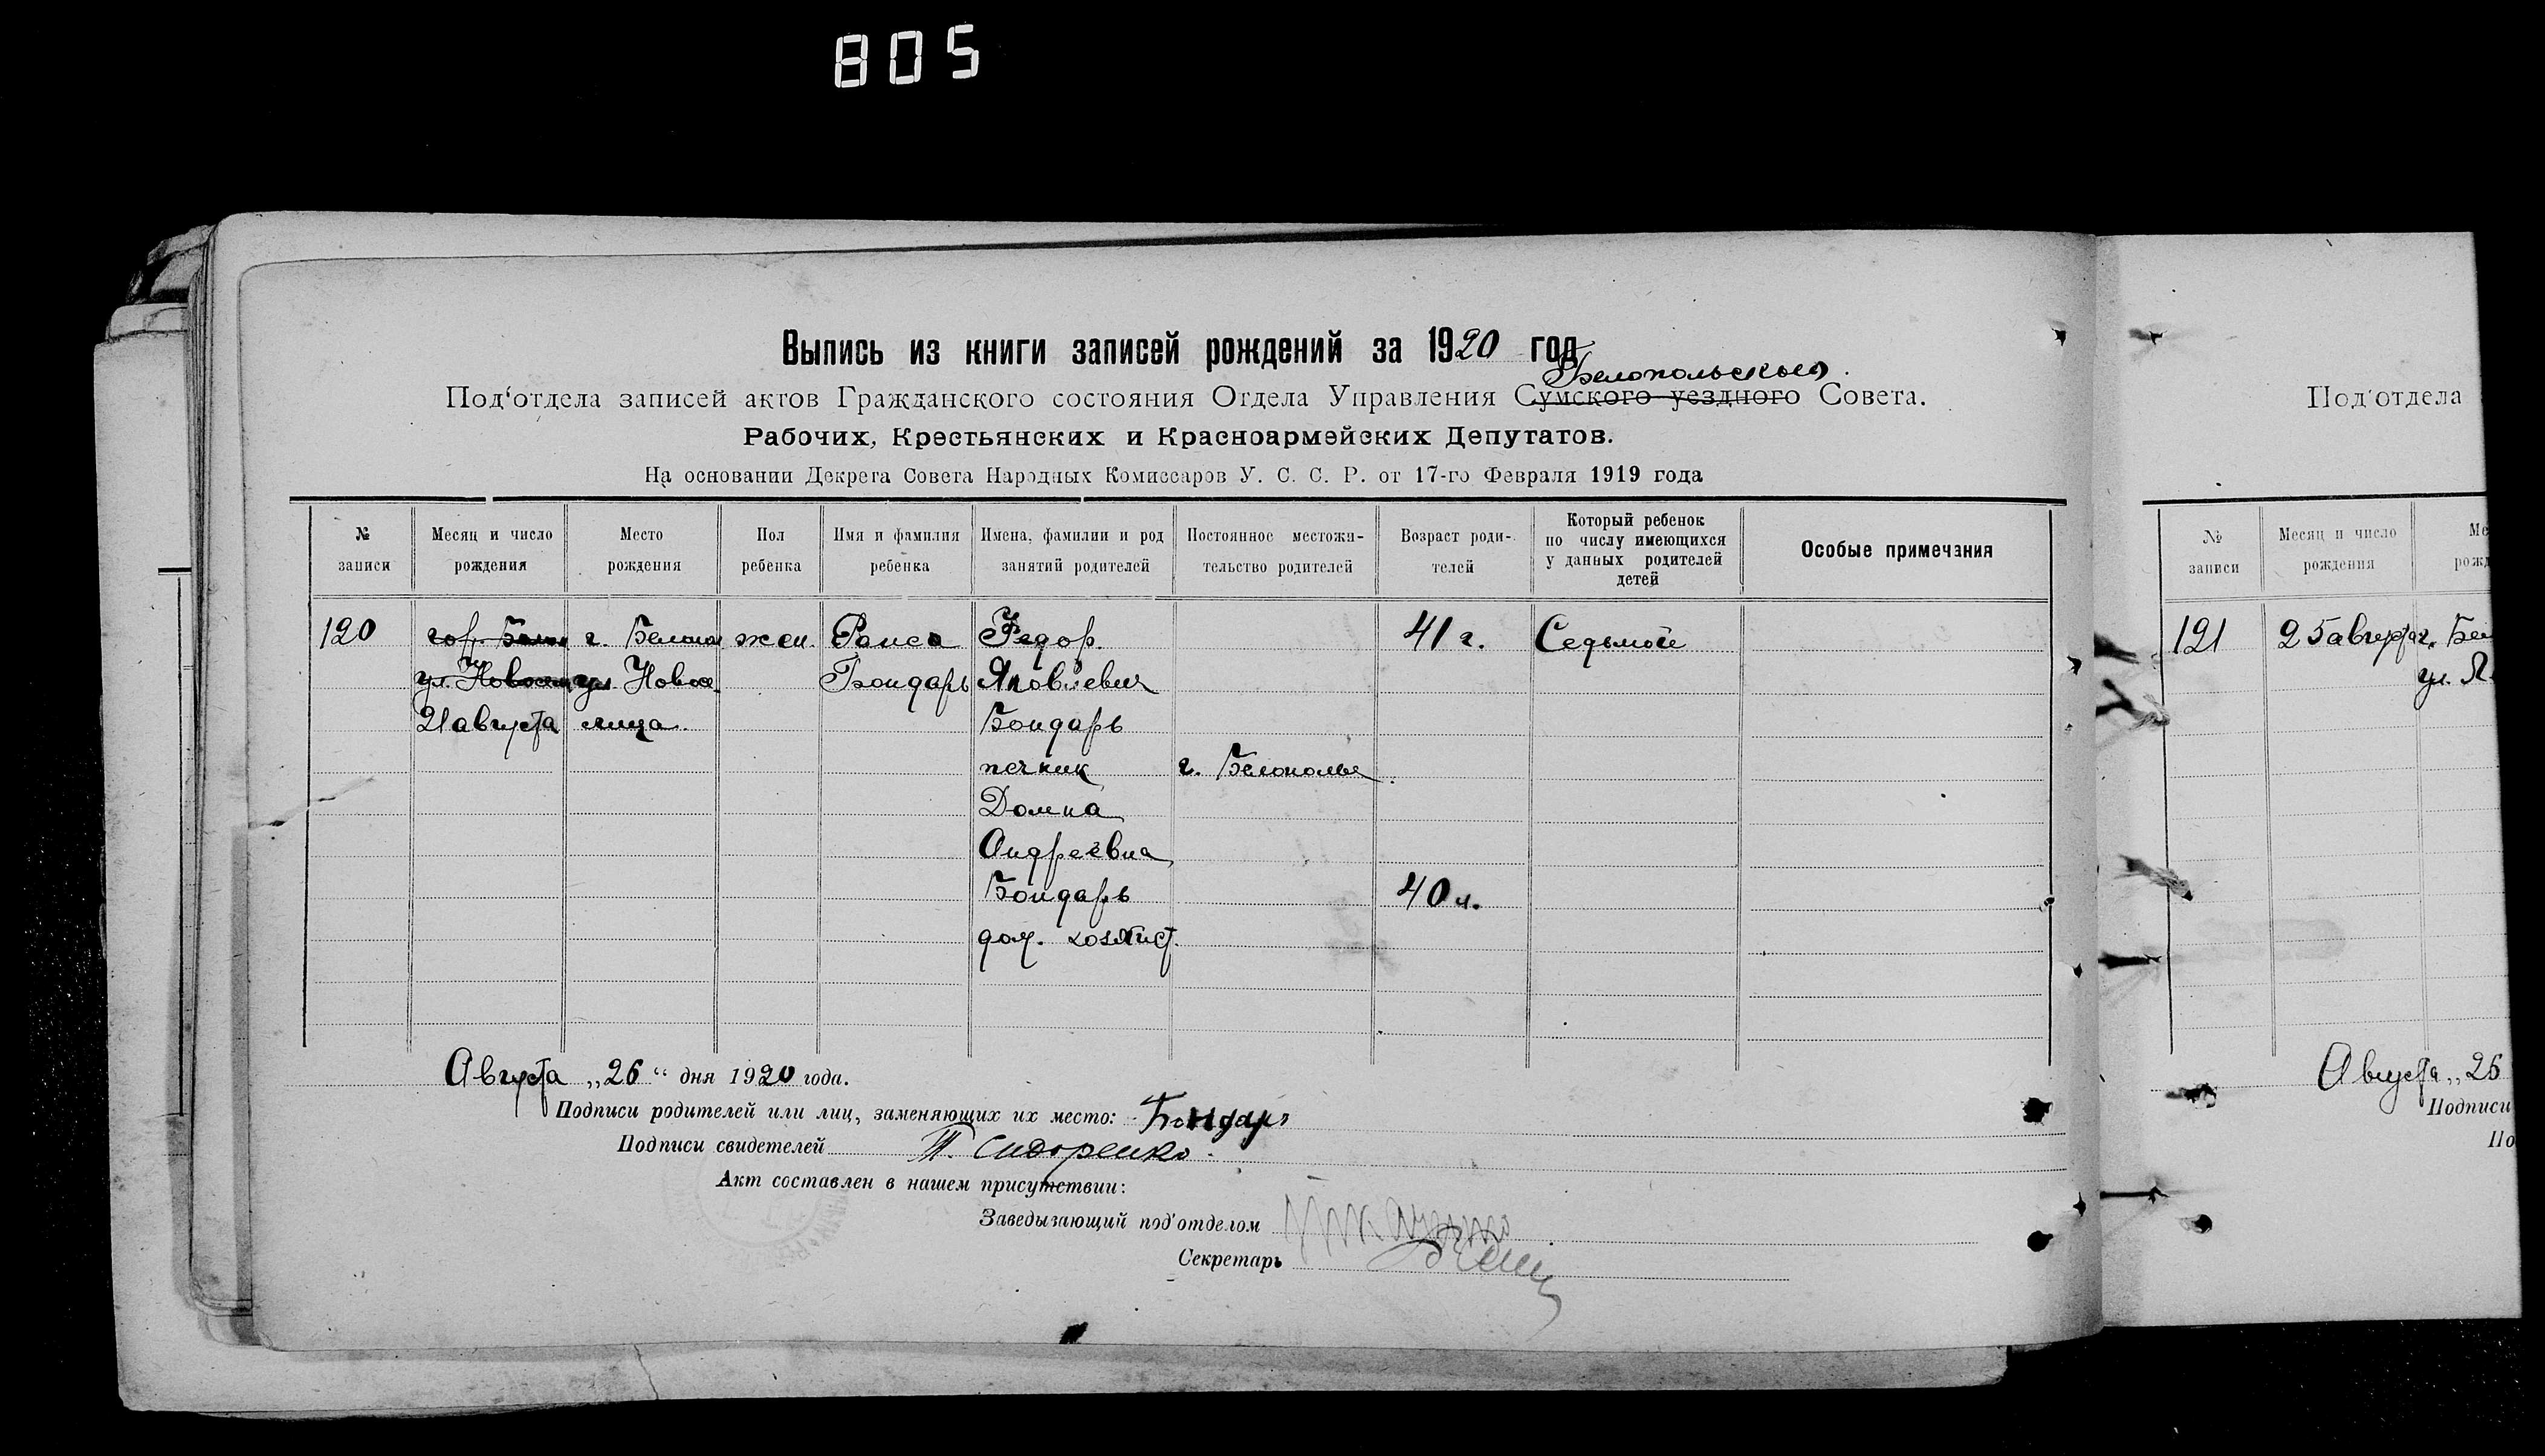 805
Выпись из книги записей рождений за 1920 год
Белопольского
Под'отдела записей актов Гражданского состояния Отдела Управления Сумского уездного Совета.
Рабочих, Крестьянских и Красноармейских Депутатов.
На основании Декрета Совета Народных Комиссаров У. С. С. Р. от 17-го Февраля 1919 года
№ записи
Месяц и число рождения
Место рождения
Пол ребенка
Имя и фамилия ребенка
Имена, фамилии и род занятий родителей
Постоянное местожительство родителей
Возраст родителей
Который ребенок по числу имеющихся у данных родителей детей
Особые примечания
120 гор. г. Белопол жен. Раиса Федор 41 г. Седьмой
ул. ул. Новосе Бондарь Яковлевич
21 августа лица. Бондарь
печник г. Белополье
Домна
Андреевна
Бондарь 40 л.
дом. хозяист.
Августа „26“ дня 1920 года.
Подписи родителей или лиц, заменяющих их место: Бондарь
Подписи свидетелей Т. Сидоренко.
Акт составлен в нашем присутствии:
Заведывающий под'отделом
Секретарь
Под'отдела
№ записи
Месяц и число рождения
Ме
рожд
121 25 августа г. Бел
ул.
Августа „26
Подписи
По